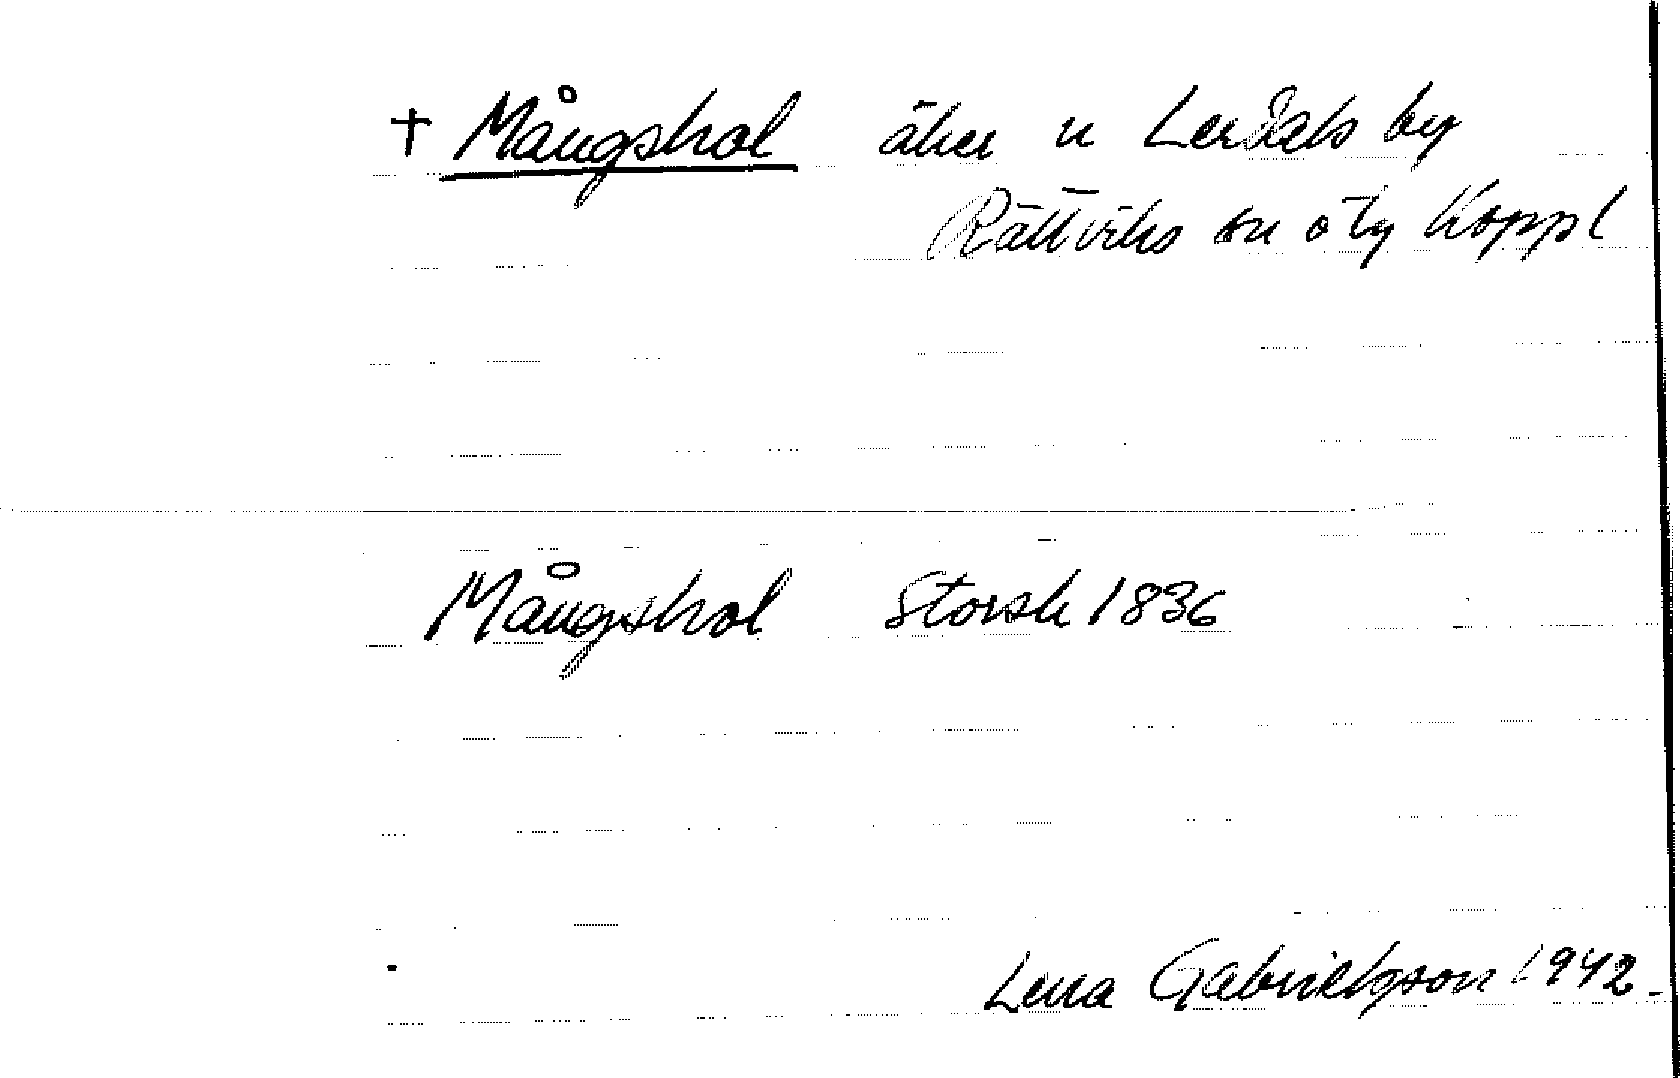 + Mångshol åker u Lerdals by
Rättviks sn o tg Koppl
Mångshol Storsk 1836
Lena Gabrielsson 1942.